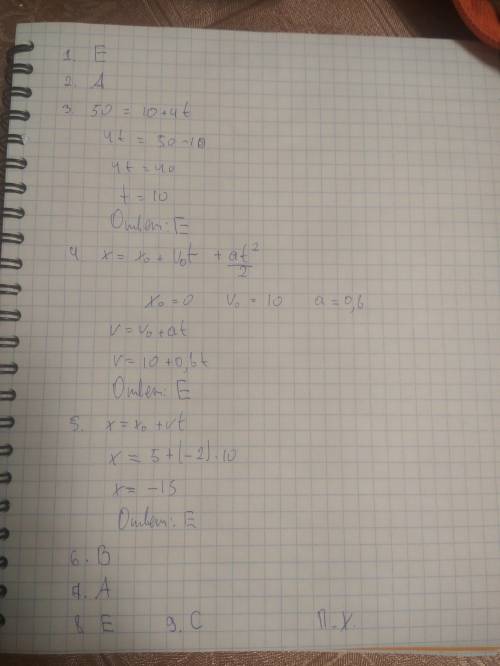 1. E
2. A
3. 50 = 10+4t
4t = 50-10
4t = 40
t = 10
Ответ: E
4. x = x₀ + v₀t + at²/2
x₀ = 0 v₀ = 10 a = 0,6
v = v₀ + at
v = 10 + 0,6t
Ответ: E
5. x = x₀ + vt
x = 5 + (-2)·10
x = -15
Ответ: E
6. B
7. A
8 E 9. C П-X.